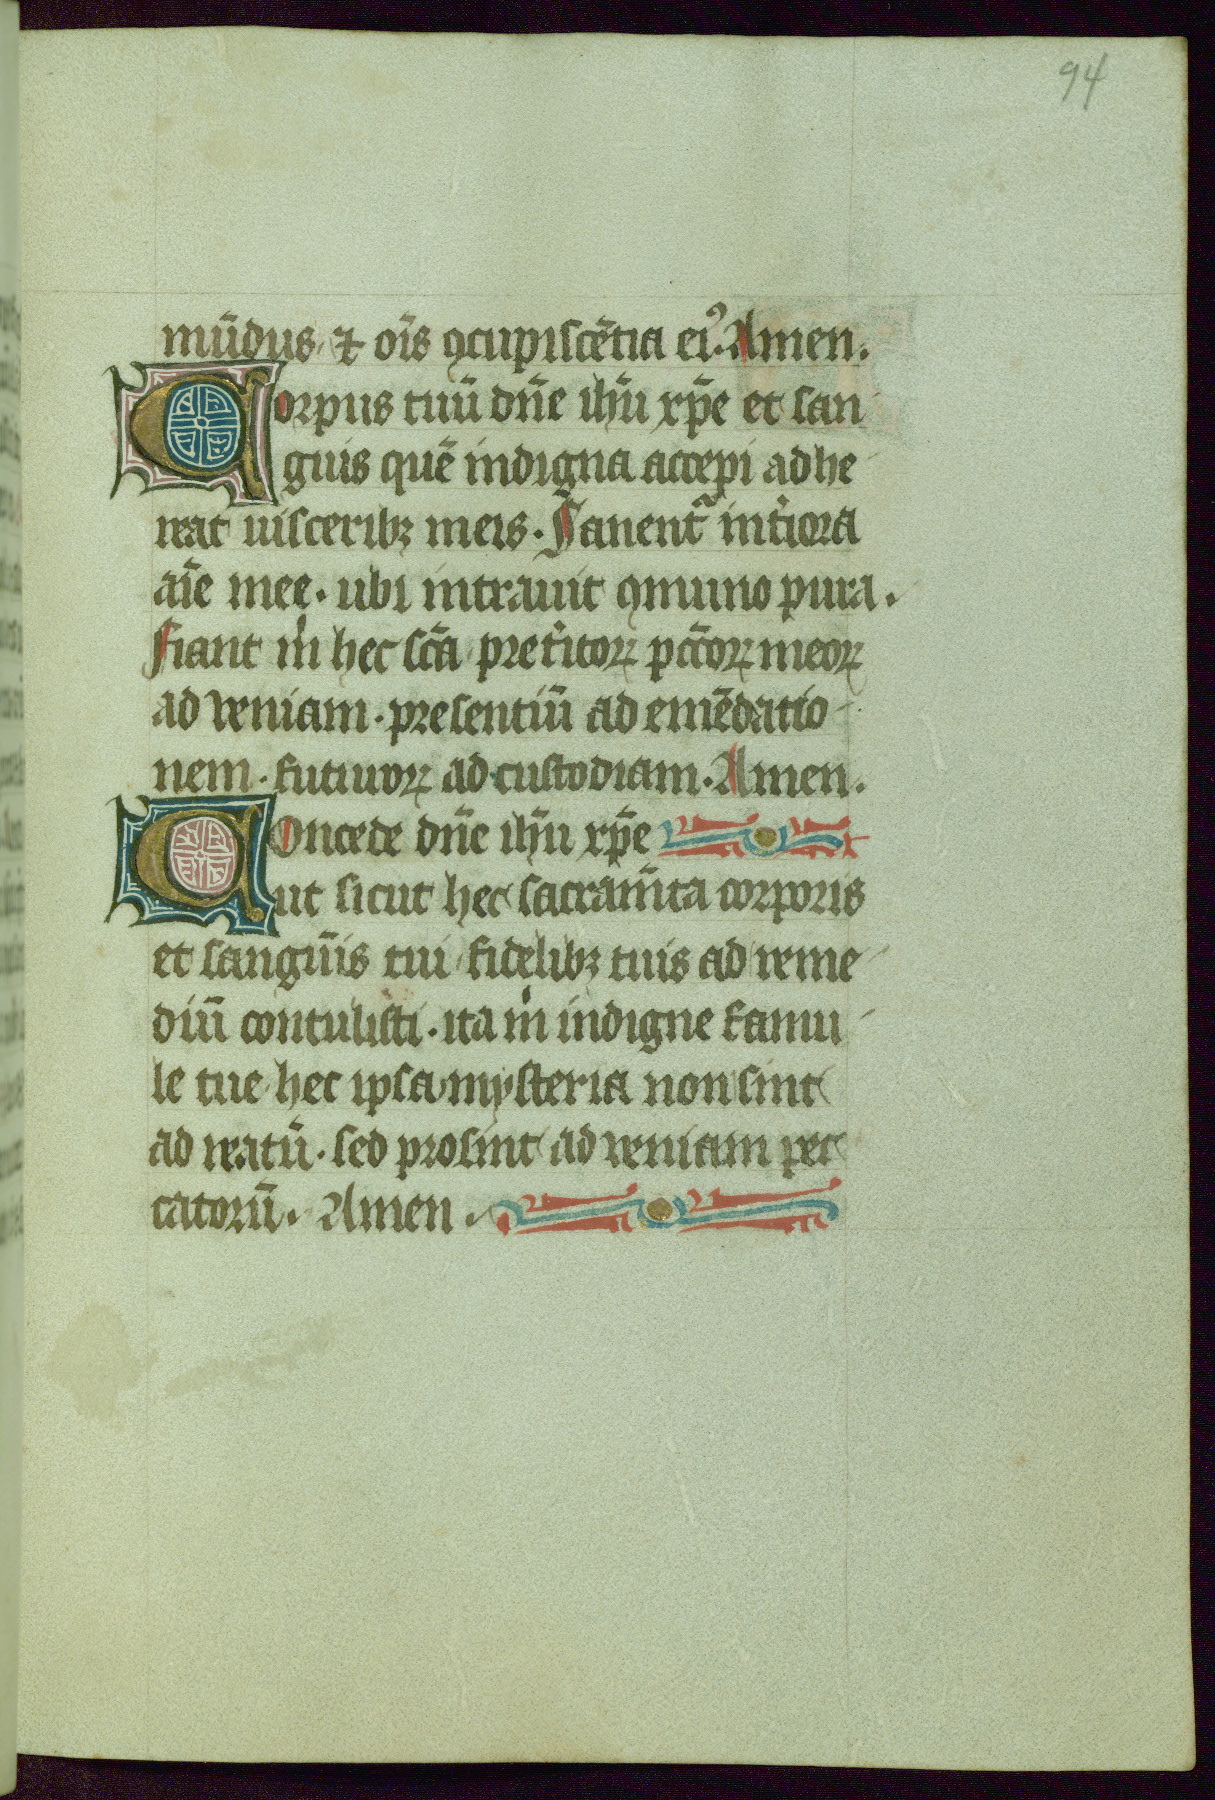 94
mu̅dus ⁊ oi̅s ꝯcupisce̅tia ei᷒. Amen.
Corpus tuu̅ dn̅e ih̅u xp̅e et san
guis que̅ indigna accepi adhe
reat uisceribꝫ meis. Sanent᷑ int̍iora
ai̅e mee. ubi intrauit ꝯmunio pura.
Fiant m̍ hec sc̅a p̄ret̍itoꝝ pc̅c̅oꝝ meoꝝ
ad veniam. presentiu̅ ad eme̅datio
nem. futuroꝝ ad custodiam. Amen.
Concede dn̅e ih̅u xp̅e
ut sicut hec sacram̅ta corporis
et sangui̅s tui fidelibꝫ tuis ad reme
diu̅ contulisti. ita m̍ indigne famu
le tue hec ipsa mysteria non sint
ad reatu̅. sed prosint ad veniam pec
catoru̅. Amen.